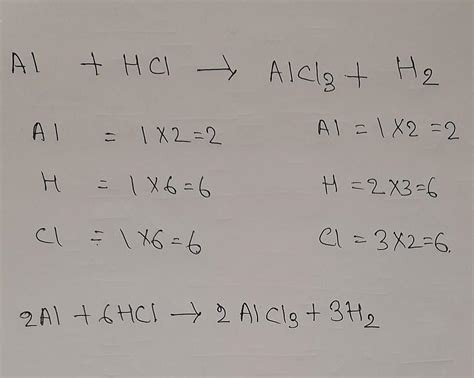 Al + HCl → AlCl3 + H2
Al = 1×2=2 Al = 1×2=2
H = 1×6=6 H=2×3=6
Cl = 1×6=6 Cl = 3×2=6.
2Al + 6HCl → 2AlCl3 + 3H2